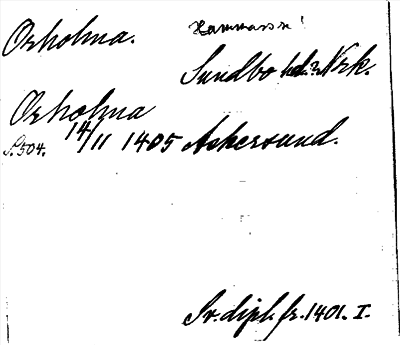 Orholma. Hammar sn!
Sundbo hd. Nrk.
Orholma
S. 504. 14/11 1405 Askersund.
Sv. dipl. fr. 1401. I.